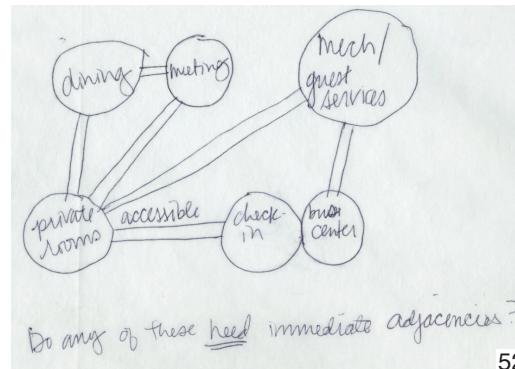 dining
meeting
mech/
guest
services
private
rooms
accessible
check-
in
center
Do any of these need immediate adjacencies?
52